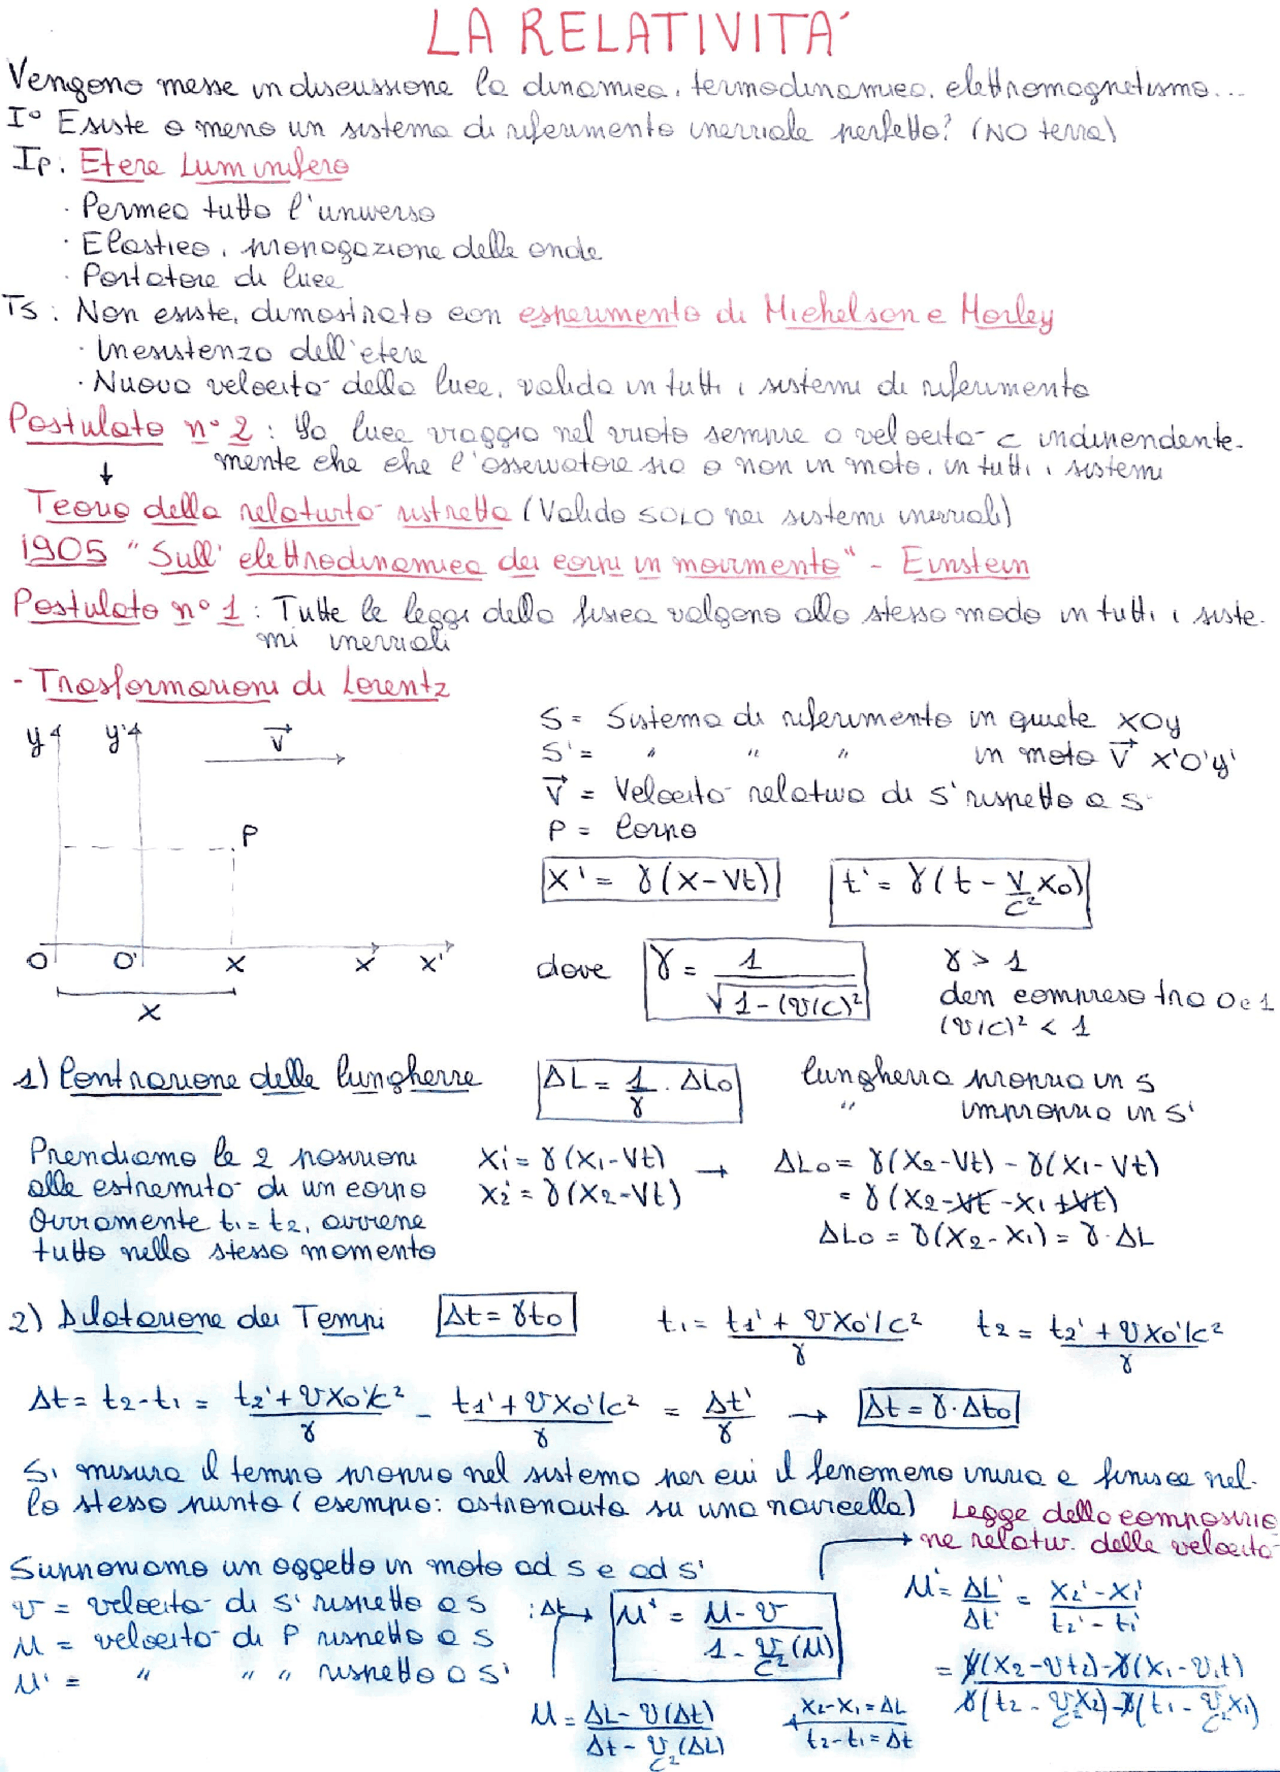 LA RELATIVITA'
Vengono messe in discussione la dinamica, termodinamica, elettromagnetismo...
I° Esiste o meno un sistema di riferimento inerziale perfetto? (NO terra)
Ip: Etere Luminifero
· Permea tutto l'universo
· Elastico, propagazione delle onde
· Portatore di luce
Ts: Non esiste, dimostrato con esperimento di Michelson e Morley
· Inesistenza dell'etere
· Nuova velocità della luce, valida in tutti i sistemi di riferimento
Postulato n° 2: La luce viaggia nel vuoto sempre a velocità c indipendente-
mente che che l'osservatore sia o non in moto, in tutti i sistemi
↓
Teoria della relatività ristretta (Valida SOLO nei sistemi inerziali)
1905 "Sull'elettrodinamica dei corpi in movimento" - Einstein
Postulato n° 1: Tutte le leggi della fisica valgono allo stesso modo in tutti i siste-
mi inerziali
- Trasformazioni di Lorentz
y y' v⃗
P
O O' x x x'
x
S = Sistema di riferimento in quiete xOy
S' = " " " in moto v⃗ x'O'y'
v⃗ = Velocità relativa di S' rispetto a S
P = Corpo
x' = γ(x-vt)
t' = γ(t - v/c² x₀)
dove γ = 1/√1-(v/c)²
γ > 1
den compreso tra 0 e 1
(v/c)² < 1
1) Contrazione delle lunghezze ΔL = 1/γ · ΔL₀
lunghezza propria in S
" impropria in S'
Prendiamo le 2 posizioni
alle estremità di un corpo
Ovviamente t₁ = t₂, avviene
tutto nello stesso momento
x₁' = γ(x₁-vt)
x₂' = γ(x₂-vt)
→ ΔL₀ = γ(x₂-vt) - γ(x₁-vt)
= γ(x₂-vt-x₁+vt)
ΔL₀ = γ(x₂-x₁) = γ·ΔL
2) Dilatazione dei Tempi Δt = γt₀ t₁ = t₁' + vx₀'/c² / γ t₂ = t₂' + vx₀'/c² / γ
Δt = t₂-t₁ = t₂' + vx₀'/c² / γ - t₁' + vx₀'/c² / γ = Δt'/γ → Δt = γ·Δt₀
Si misura il tempo proprio nel sistema per cui il fenomeno inizia e finisce nel-
lo stesso punto (esempio: astronauta su una navicella)
Legge della composizio
ne relativ. delle velocità
Supponiamo un oggetto in moto ad S e ad S'
v = velocità di S' rispetto a S
u = velocità di P rispetto a S
u' = " " " rispetto a S'
:Δt → u' = u-v / 1 - v/c² (u)
u = ΔL - v(Δt) / Δt - v/c² (ΔL)
x₂-x₁ = ΔL
t₂-t₁ = Δt
u' = ΔL'/Δt' = x₂'-x₁' / t₂'-t₁'
= γ(x₂-vt₂)-γ(x₁-v₁t) / γ(t₂ - v/c² x₂)-γ(t₁ - v/c² x₁)